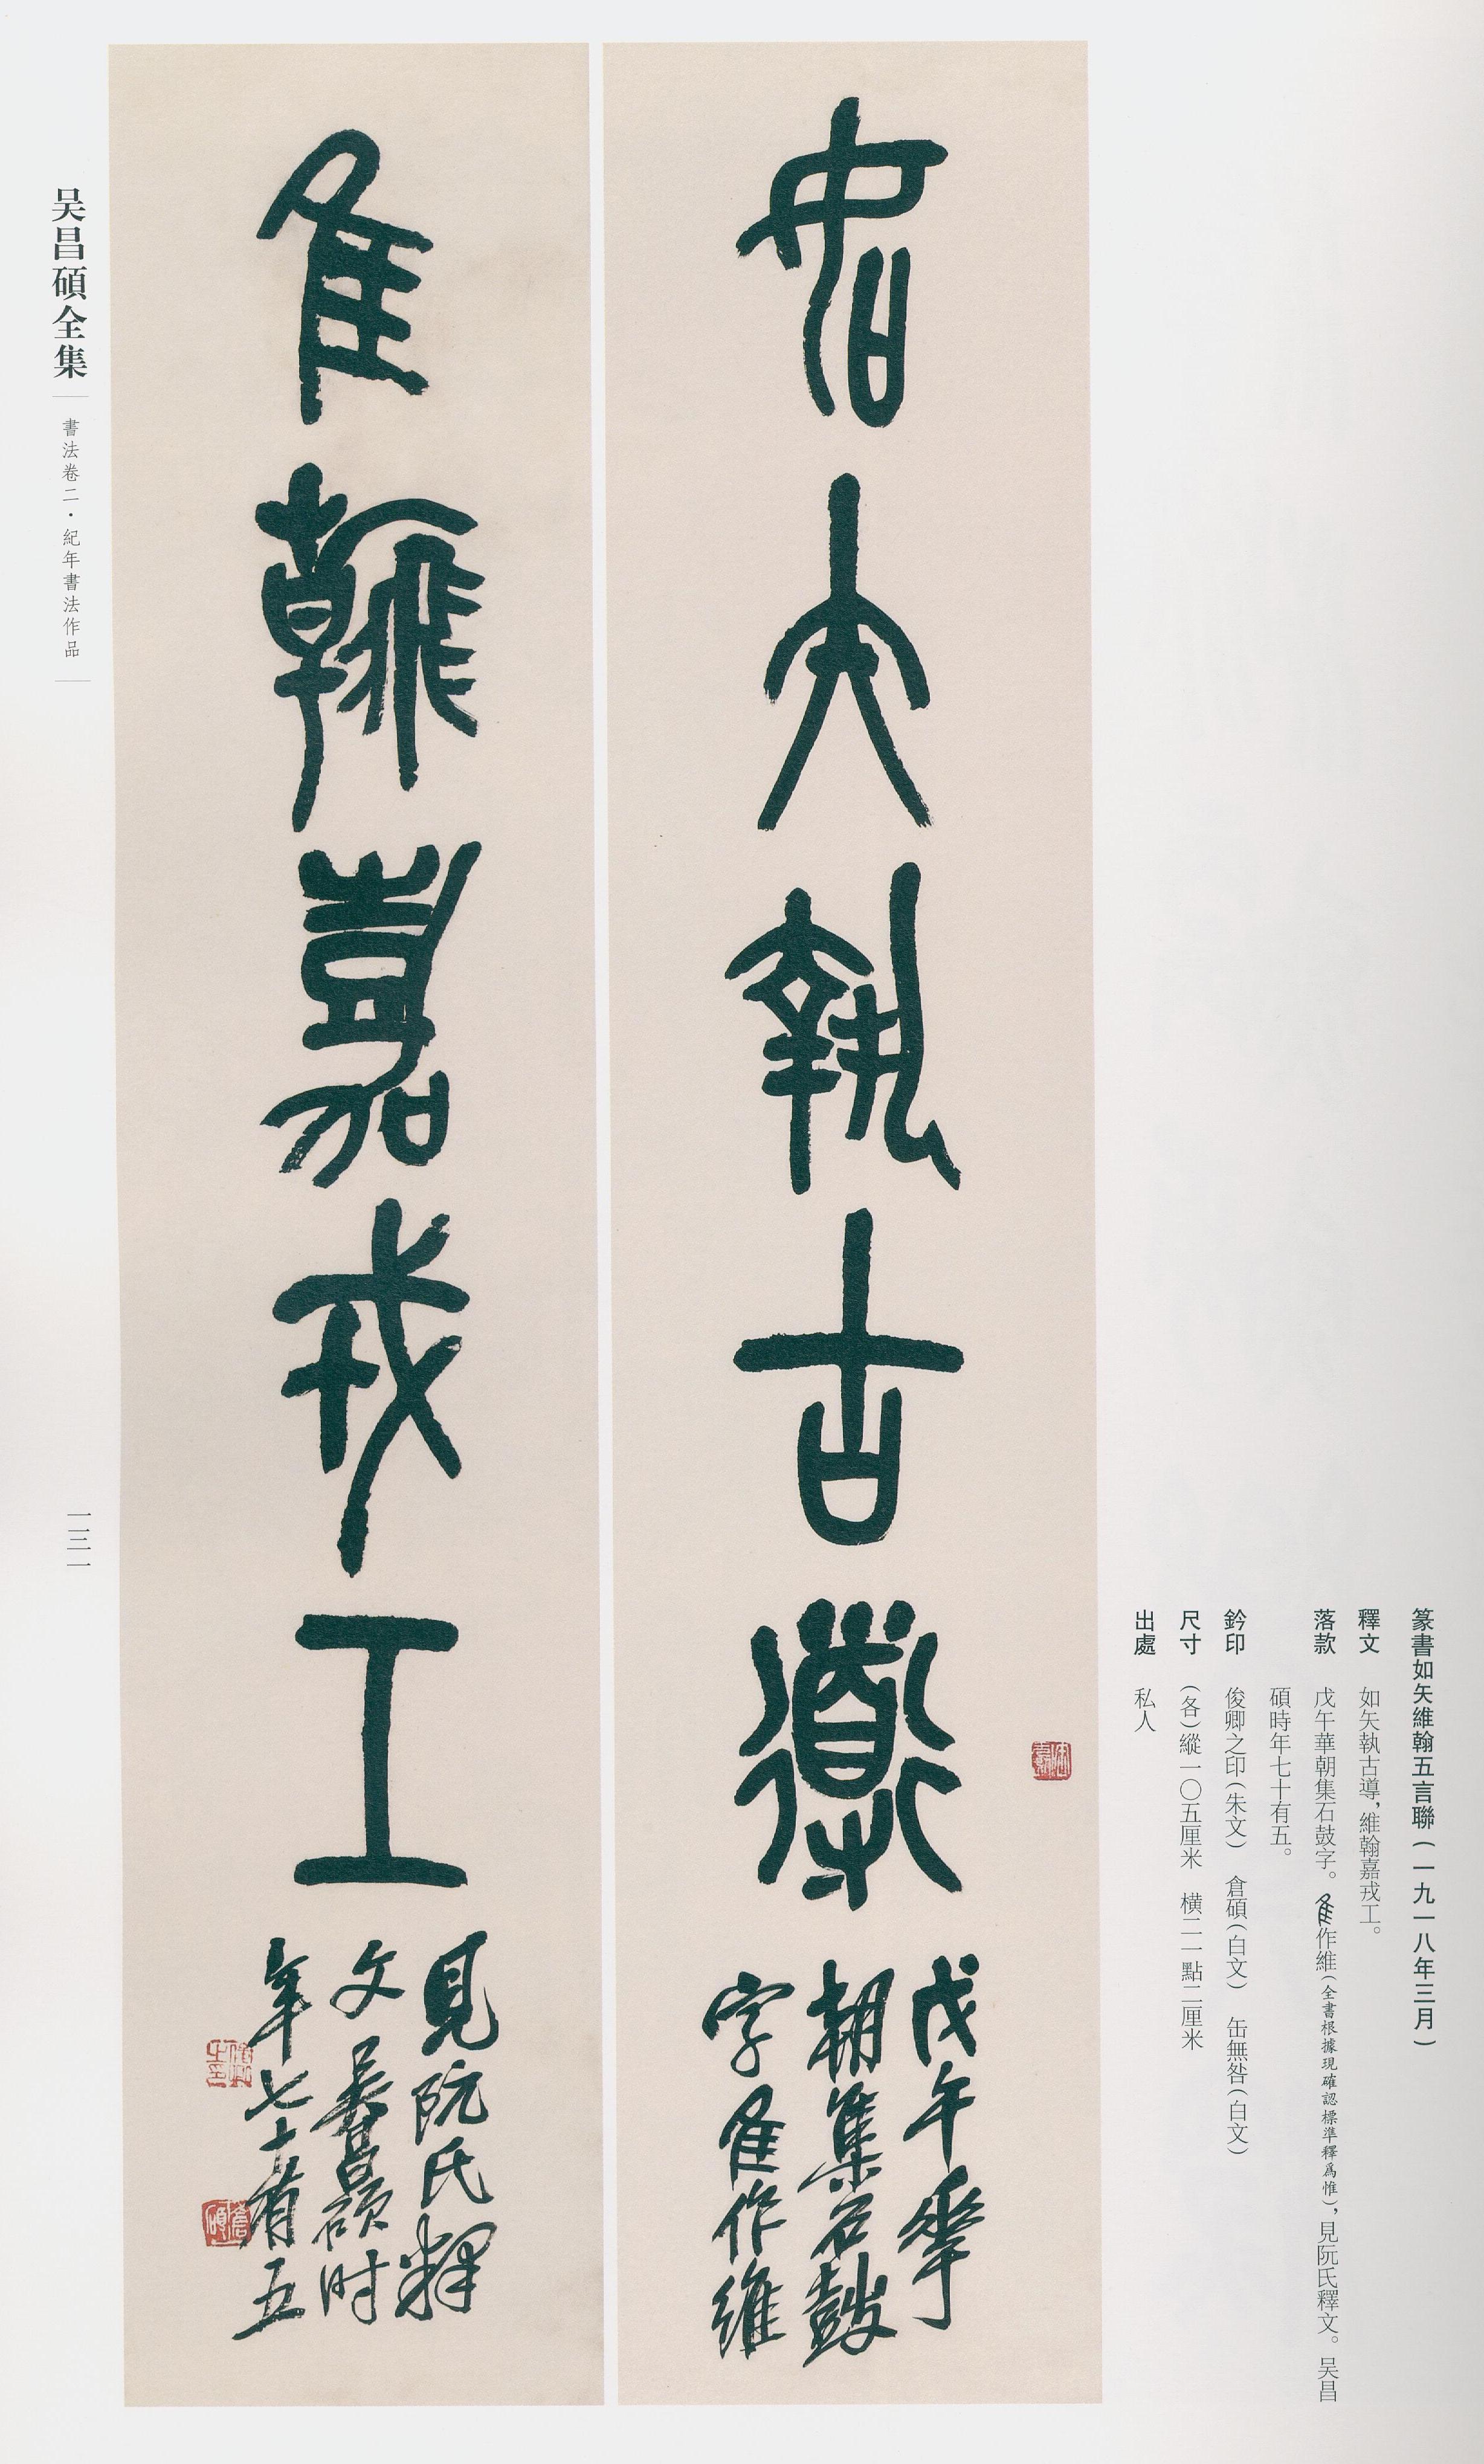 篆書如矢維翰五言聯(一九一八年三月)
釋文 如矢執古導,維翰嘉戎工。
落款 戊午華朝集石鼓字。隹作維(全書根據現確認標準釋爲惟),見阮氏釋文。吴昌
碩時年七十有五。
鈐印 俊卿之印(朱文) 倉碩(白文) 缶無咎(白文)
尺寸 (各)縱一〇五厘米 横二一點二厘米
出處 私人
如矢執古導
戊午華
朝集石鼓
字隹作維
隹翰嘉戎工
見阮氏釋
文吴昌碩时
年七十有五
俊卿之印
倉碩
吴昌碩全集
書法卷二·紀年書法作品
一三一